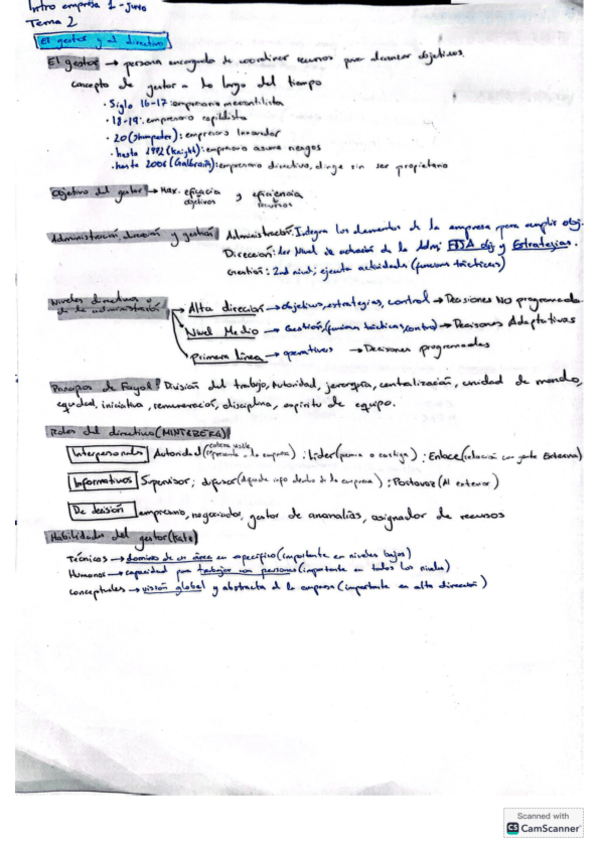 Intro empresa 1-junio
Tema 2
El gestor y el directivo
El gestor → persona encargada de coordinar recursos para alcanzar objetivos.
Concepto de gestor a lo largo del tiempo
· Siglo 16-17: empresario mercantilista
· 18-19: empresario capitalista
· 20 (Shumpeter): empresario innovador
· hasta 1972 (Knight): empresario asume riesgos
· hasta 2006 (Galbraith): empresario directivo, dirige sin ser propietario
Objetivo del gestor → Max. eficacia y eficiencia
objetivos recursos
Administración, dirección y gestión
Administración: Integra los elementos de la empresa para cumplir obj.
Dirección: 1er Nivel de actuación de la Adm; obj y Estrategias.
Gestión: 2nd nivel; ejecuta actividades (funciones tácticas)
Niveles directivos o de la administración
Alta dirección → objetivos, estrategias, control → Decisiones NO programada
Nivel Medio → Gestión, (funciones tácticas, control) → Decisiones Adaptativas
Primera línea → operativos → Decisiones programadas
Principios de Fayol: División del trabajo, Autoridad, jerarquía, centralización, unidad de mando,
equidad, iniciativa, remuneración, disciplina, espíritu de equipo.
Roles del directivo (MINTZBERG)
Interpersonales Autoridad (cabeza visible representa a la empresa); Líder (premia o castiga); Enlace (relación con gente Externa)
Informativos Supervisor; difusor (difunde info dentro de la empresa); Portavoz (Al exterior)
De decisión empresario, negociador, gestor de anomalías, asignador de recursos
Habilidades del gestor (Katz)
Técnicos → dominio de un área en específico (importante en niveles bajos)
Humanos → capacidad para trabajar con personas (importante en todos los niveles)
Conceptuales → visión global y abstracta d la empresa (importante en alta dirección)
Scanned with
CS CamScanner